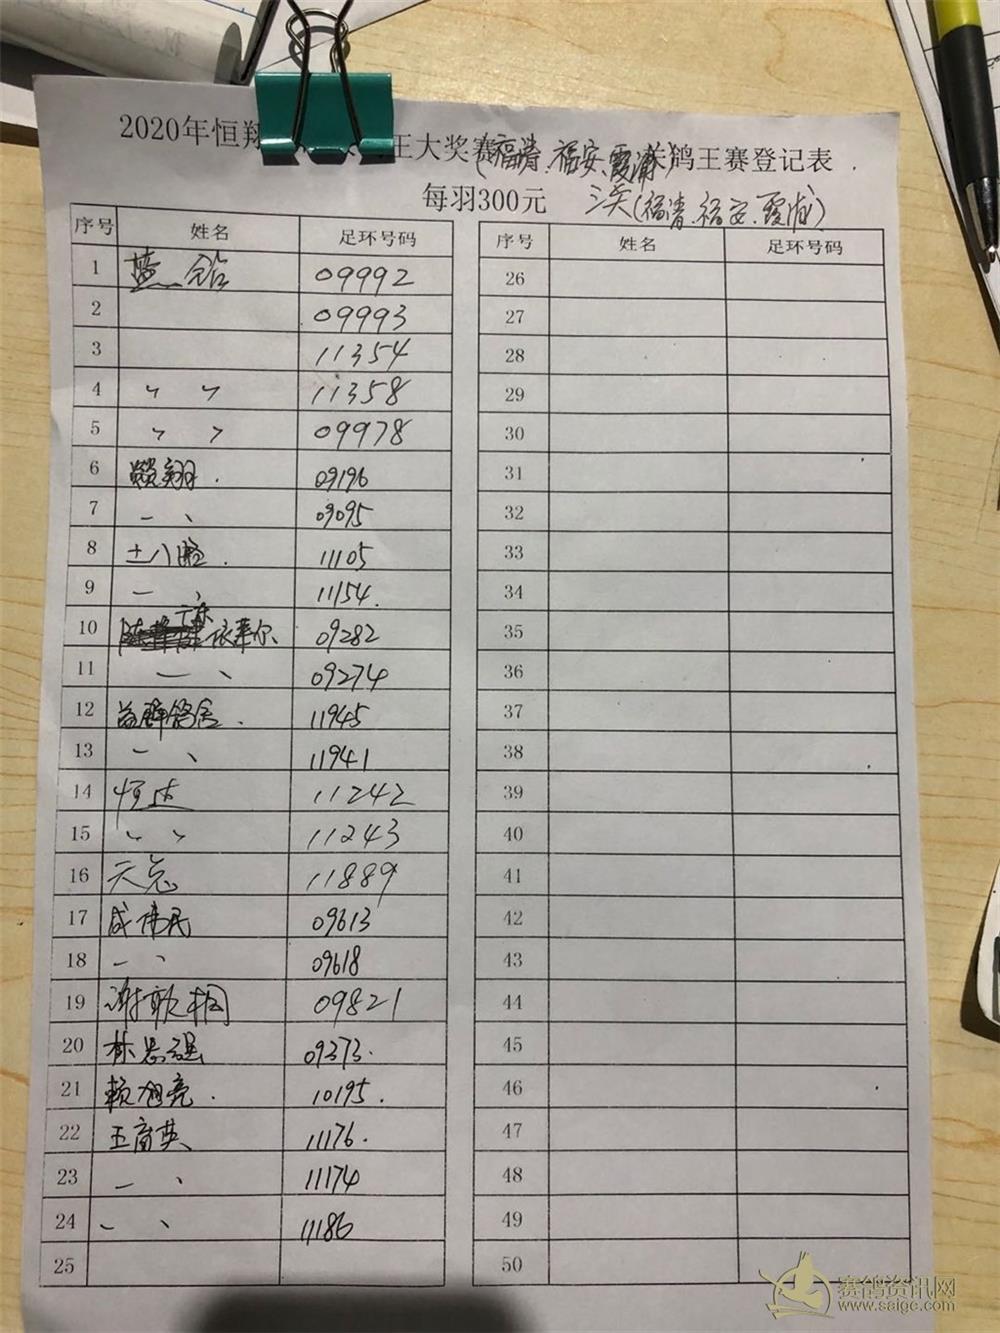 2020年恒翔 王大奖赛(福清、福安、霞浦)关鸽王赛登记表
每羽300元 三关(福清、福安、霞浦)
序号 姓名 足环号码 序号 姓名 足环号码
1 蓝 09992 26
2 09993 27
3 11354 28
4 〃 〃 11358 29
5 〃 〃 09978 30
6 翔 09196 31
7 一 、 09095 32
8 十八 11105 33
9 一 、 11154 34
10 广东 依华尔 09282 35
11 一 、 09274 36
12 鸽舍 11945 37
13 一 、 11941 38
14 恒达 11242 39
15 〃 〃 11243 40
16 天 11889 41
17 成伟民 09613 42
18 一 、 09618 43
19 谢 桐 09821 44
20 林 强 09373 45
21 赖旭亮 10195 46
22 王育英 11176 47
23 一 、 11174 48
24 一 、 11186 49
25 50
赛鸽资讯网
www.saige.com